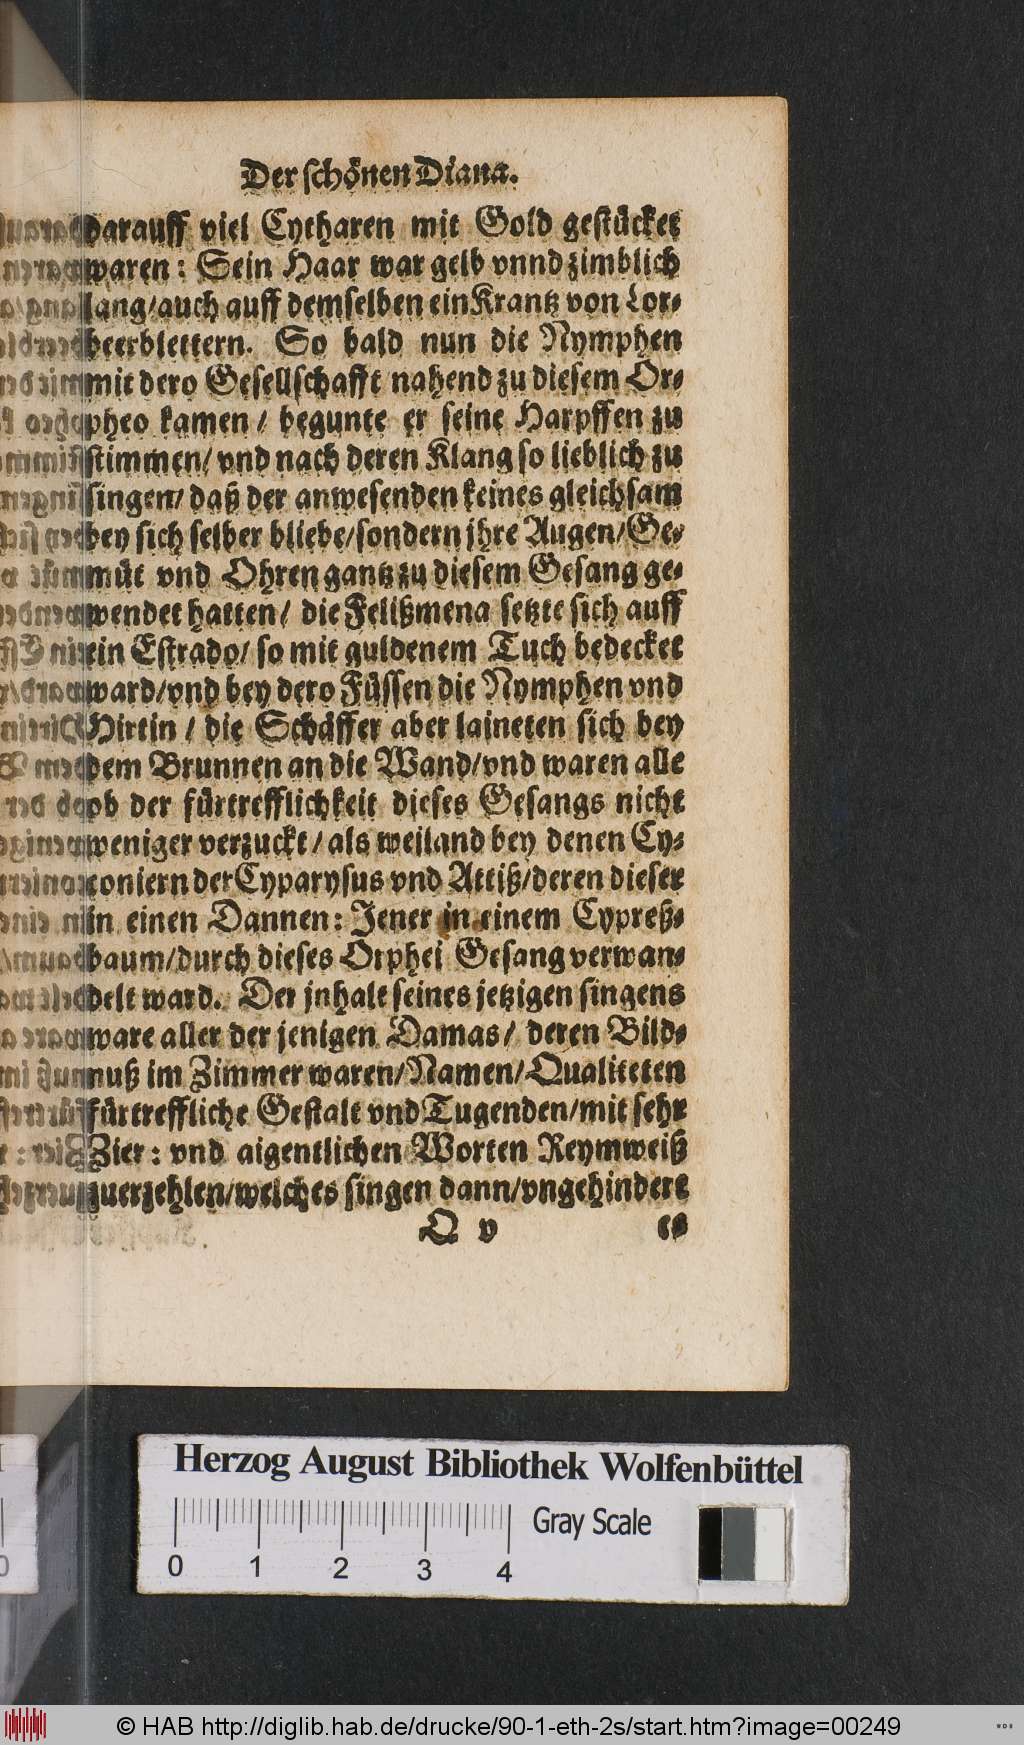 Der schönen Diana.
darauff viel Cytharen mit Gold gestücket
waren: Sein Haar war gelb vnnd zimblich
lang/auch auff demselben ein Krantz von Lor-
beerblettern. So bald nun die Nymphen
mit dero Gesellschafft nahend zu diesem Or-
pheo kamen / begunte er seine Harpffen zu
stimmen/ vnd nach deren Klang so lieblich zu
singen/ daß der anwesenden keines gleichsam
bey sich selber bliebe/sondern jhre Augen/Ge-
müt vnd Ohren gantz zu diesem Gesang ge-
wendet hatten/ die Felißmena setzte sich auff
ein Estrado/ so mit guldenem Tuch bedecket
ward/vnd bey dero Füssen die Nymphen vnd
Hirtin / die Schäffer aber laineten sich bey
dem Brunnen an die Wand/vnd waren alle
ob der fürtrefflichkeit dieses Gesangs nicht
weniger verzuckt/ als weiland bey denen Cy-
coniern der Cyparysus vnd Attiß/deren dieser
in einen Dannen: Jener in einem Cypreß-
baum/durch dieses Orphei Gesang verwan-
delt ward. Der jnhalt seines jetzigen singens
ware aller der jenigen Damas/ deren Bild-
nuß im Zimmer waren/Namen/Qualiteten
fürtreffliche Gestalt vnd Tugenden/mit sehr
Zier: vnd aigentlichen Worten Reymweiß
zuerzehlen/welches singen dann/vngehindert
Q v es
Herzog August Bibliothek Wolfenbüttel
Gray Scale
0 1 2 3 4
© HAB http://diglib.hab.de/drucke/90-1-eth-2s/start.htm?image=00249